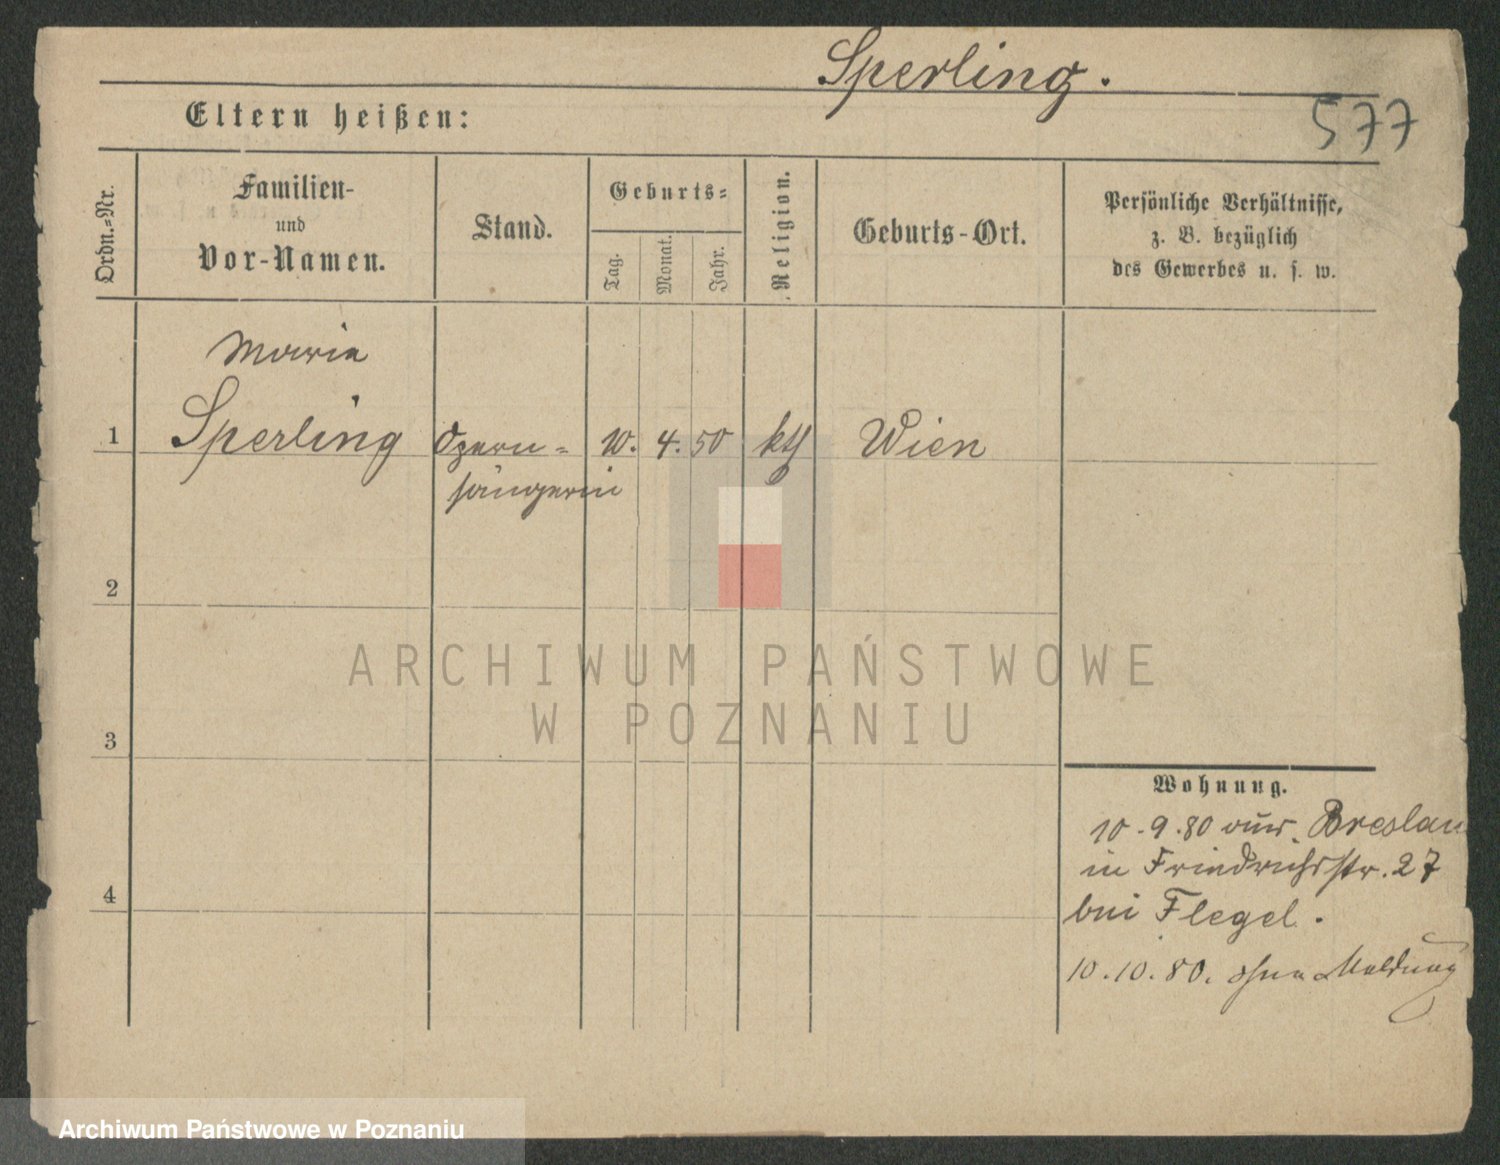 Sperling.
577
Eltern heißen:
Ordn.-Nr.
Familien-
und
Vor-Namen.
Stand.
Geburts-
Tag.
Monat.
Jahr.
Religion.
Geburts-Ort.
Persönliche Verhältnisse,
z. B. bezüglich
des Gewerbes u. s. w.
Marie
1 Sperling Opern- 10. 4. 50 kth Wien
sängerin
2
ARCHIWUM PAŃSTWOWE
W POZNANIU
3
Wohnung.
10.9.80 aus Breslau
in Friedrichsstr. 27
4
bei Flegel.
10.10.80. ohne Meldung
Archiwum Państwowe w Poznaniu